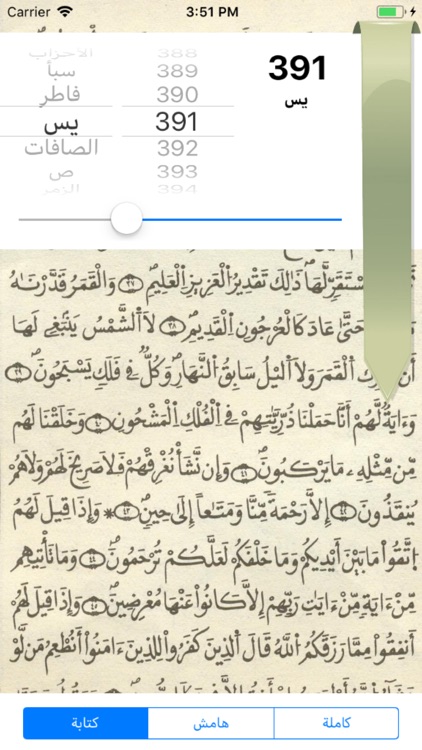 Carrier 3:51 PM
الأحزاب 388
سبأ 389
فاطر 390
يس 391
الصافات 392
ص 393
الزمر 394
391
يس
لَّهَا ذَٰلِكَ تَقْدِيرُ اُ۬لْعَزِيزِ اِ۬لْعَلِيمِ وَالْقَمَرُ قَدَّرْنَٰهُ
حَتَّىٰ عَادَ كَالْعُرْجُونِ اِ۬لْقَدِيمِ لَا اَ۬لشَّمْسُ يَنۢبَغِے لَهَا
أَن اَ۬لْقَمَرَ وَلَا اَ۬ليْلُ سَابِقُ اُ۬لنَّهَارِ وَكُلّٞ فِے فَلَكٖ يَسْبَحُونَ
وَءَايَةٞ لَّهُمُۥٓ أَنَّا حَمَلْنَا ذُرِّيَّٰتِهِمْ فِے اِ۬لْفُلْكِ اِ۬لْمَشْحُونِ وَخَلَقْنَا لَهُم
مِّن مِّثْلِهِۦ مَا يَرْكَبُونَ وَإِن نَّشَأْ نُغْرِقْهُمْ فَلَا صَرِيخَ لَهُمْ وَلَا هُمْ
يُنقَذُونَ إِلَّا رَحْمَةٗ مِّنَّا وَمَتَٰعاً إِلَىٰ حِينٖ وَإِذَا قِيلَ لَهُمُ
اُ۪تَّقُواْ مَا بَيْنَ أَيْدِيكُمْ وَمَا خَلْفَكُمْ لَعَلَّكُمْ تُرْحَمُونَ وَمَا تَأْتِيهِم
مِّنْ ءَايَةٖ مِّنْ ءَايَٰتِ رَبِّهِمُۥٓ إِلَّا كَانُواْ عَنْهَا مُعْرِضِينَ وَإِذَا قِيلَ لَهُمُۥٓ
أَنفِقُواْ مِمَّا رَزَقَكُمُ اُ۬للَّهُ قَالَ اَ۬لذِينَ كَفَرُواْ لِلذِينَ ءَامَنُوٓاْ أَنُطْعِمُ مَن لَّوْ
كاملة هامش كتابة